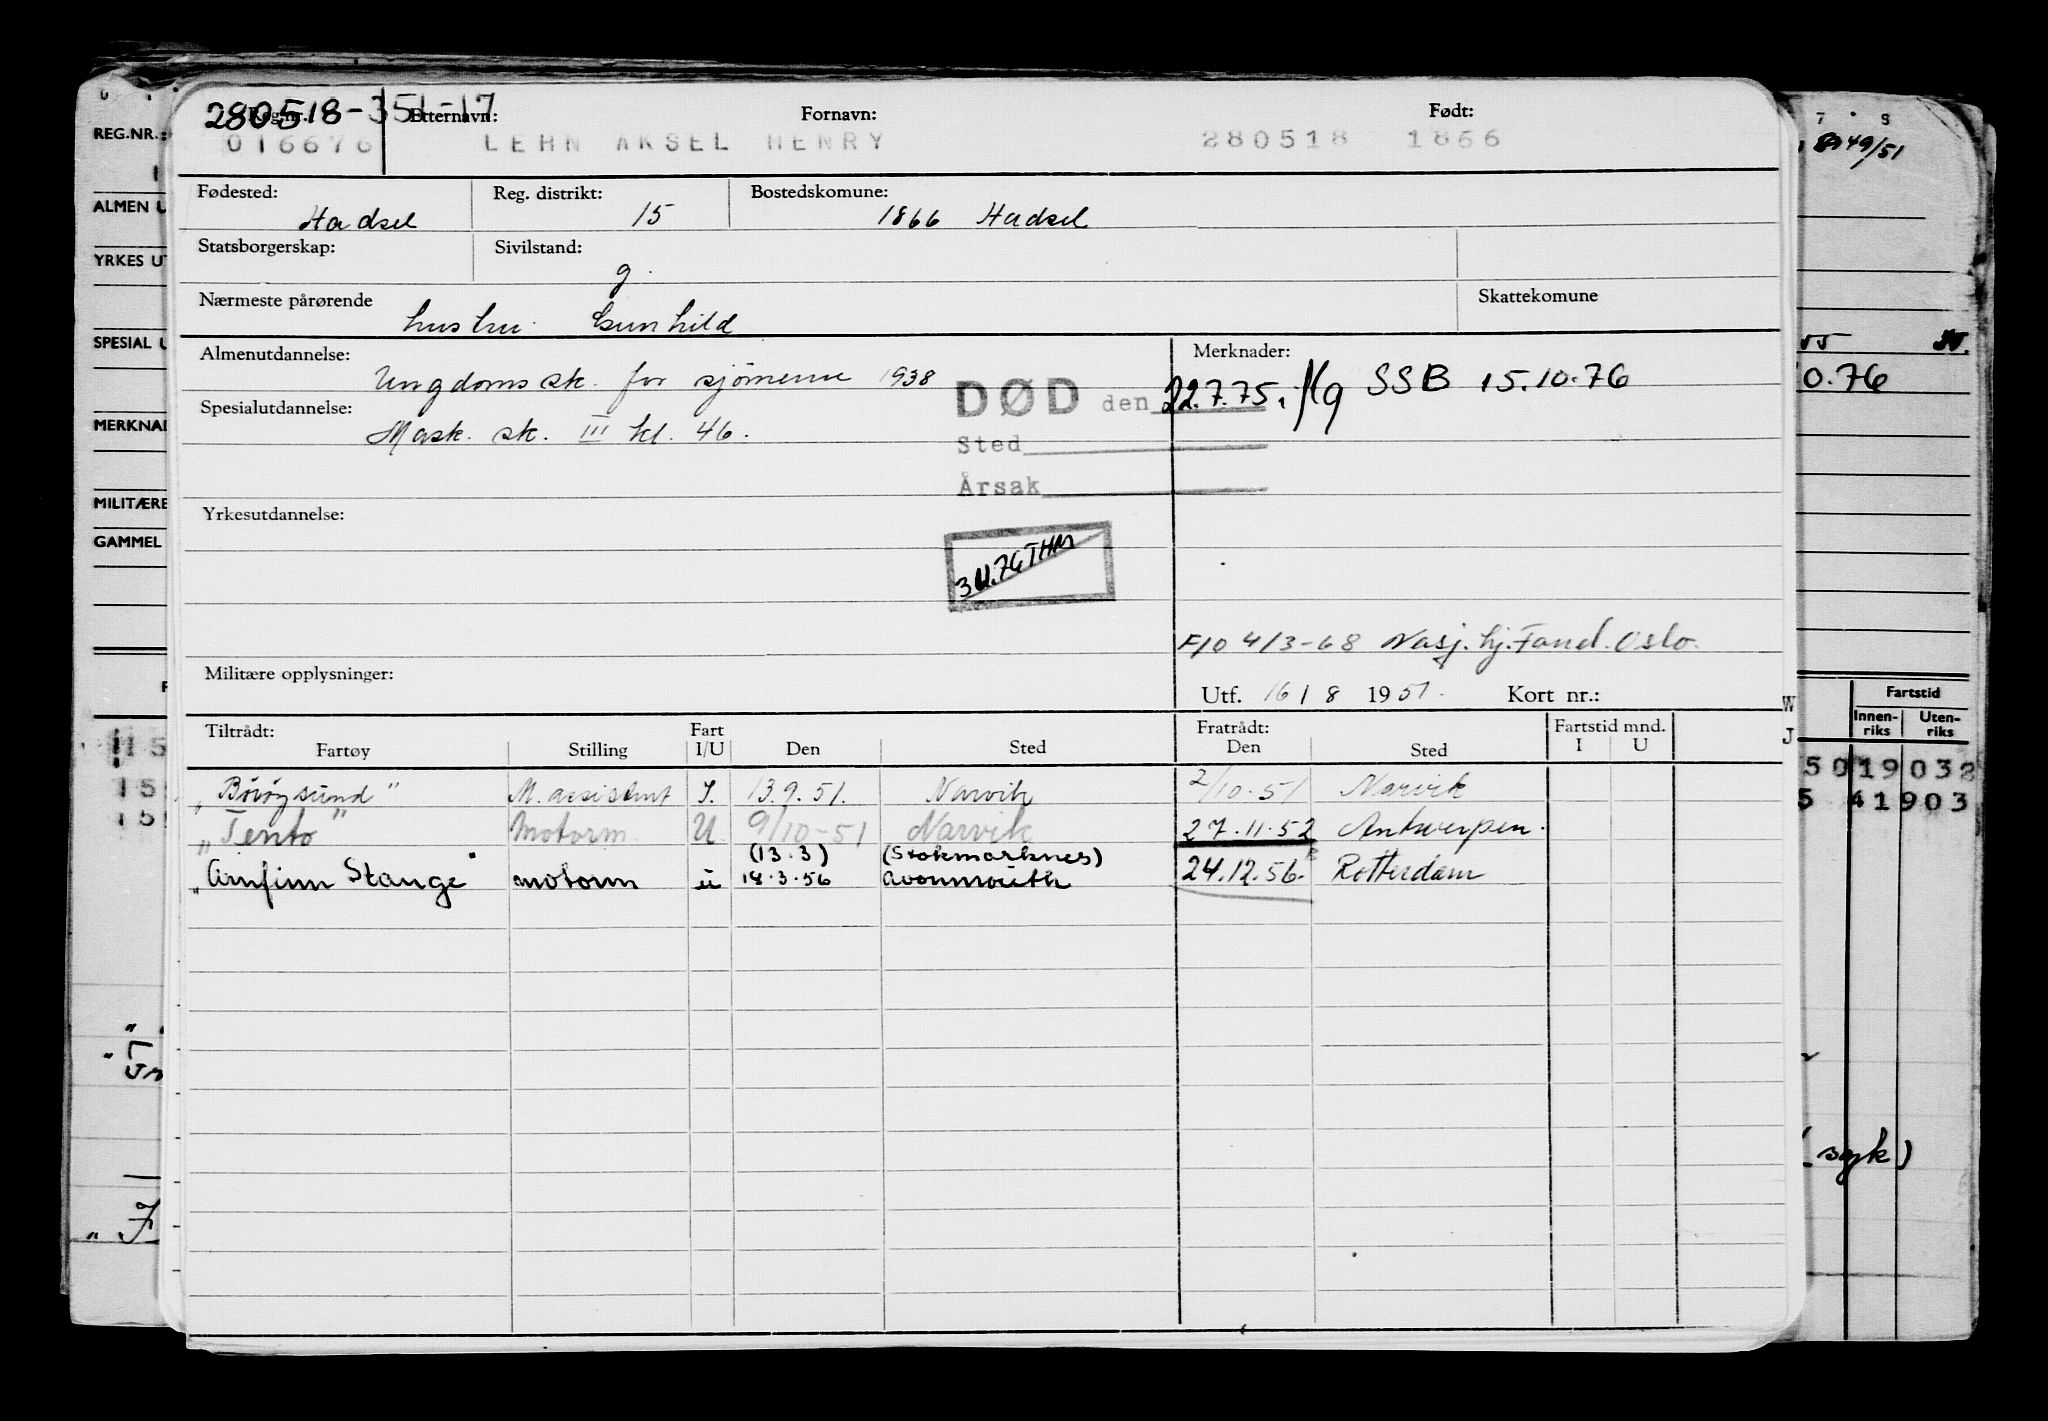 280518-351-17
Reg.nr. Etternavn: Fornavn: Født:
016676 LEHN AKSEL HENRY 280518 1866
Fødested: Reg. distrikt: Bostedskomune:
Hadsel 15 1866 Hadsel
Statsborgerskap: Sivilstand:
g.
Nærmeste pårørende Skattekomune
hustru Gunhild
Almenutdannelse: Merknader:
Ungdoms sk. for sjømenn 1938
DØD den 22.7.75. SSB 15.10.76
Spesialutdannelse:
Mask. sk. III kl. 46.
Sted
Årsak
Yrkesutdannelse:
F/O 4/3-68 Nasj. hj. Fond. Oslo.
Militære opplysninger:
Utf. 16/8 1951. Kort nr.:
Tiltrådt: Fart Fratrådt: Fartstid mnd.
Fartøy Stilling I/U Den Sted Den Sted I U
"Børøysund" M. assistent I. 13.9.51. Narvik 2/10.51 Narvik
"Tento" Motorm. U. 9/10-51 Narvik 27.11.52 Antwerpen.
(13.3) (Stokmarknes)
"Arnfinn Stange" motorm u 18.3.56 Avonmouth 24.12.56. Rotterdam
REG.NR.:
ALMEN U
YRKES UT
SPESIAL U
MERKNAD
MILITÆRE
GAMMEL
7 8
49/51
55
0.76
W
J
Fartstid
Innen-riks Uten-riks
5019032
5 41903
(syk)